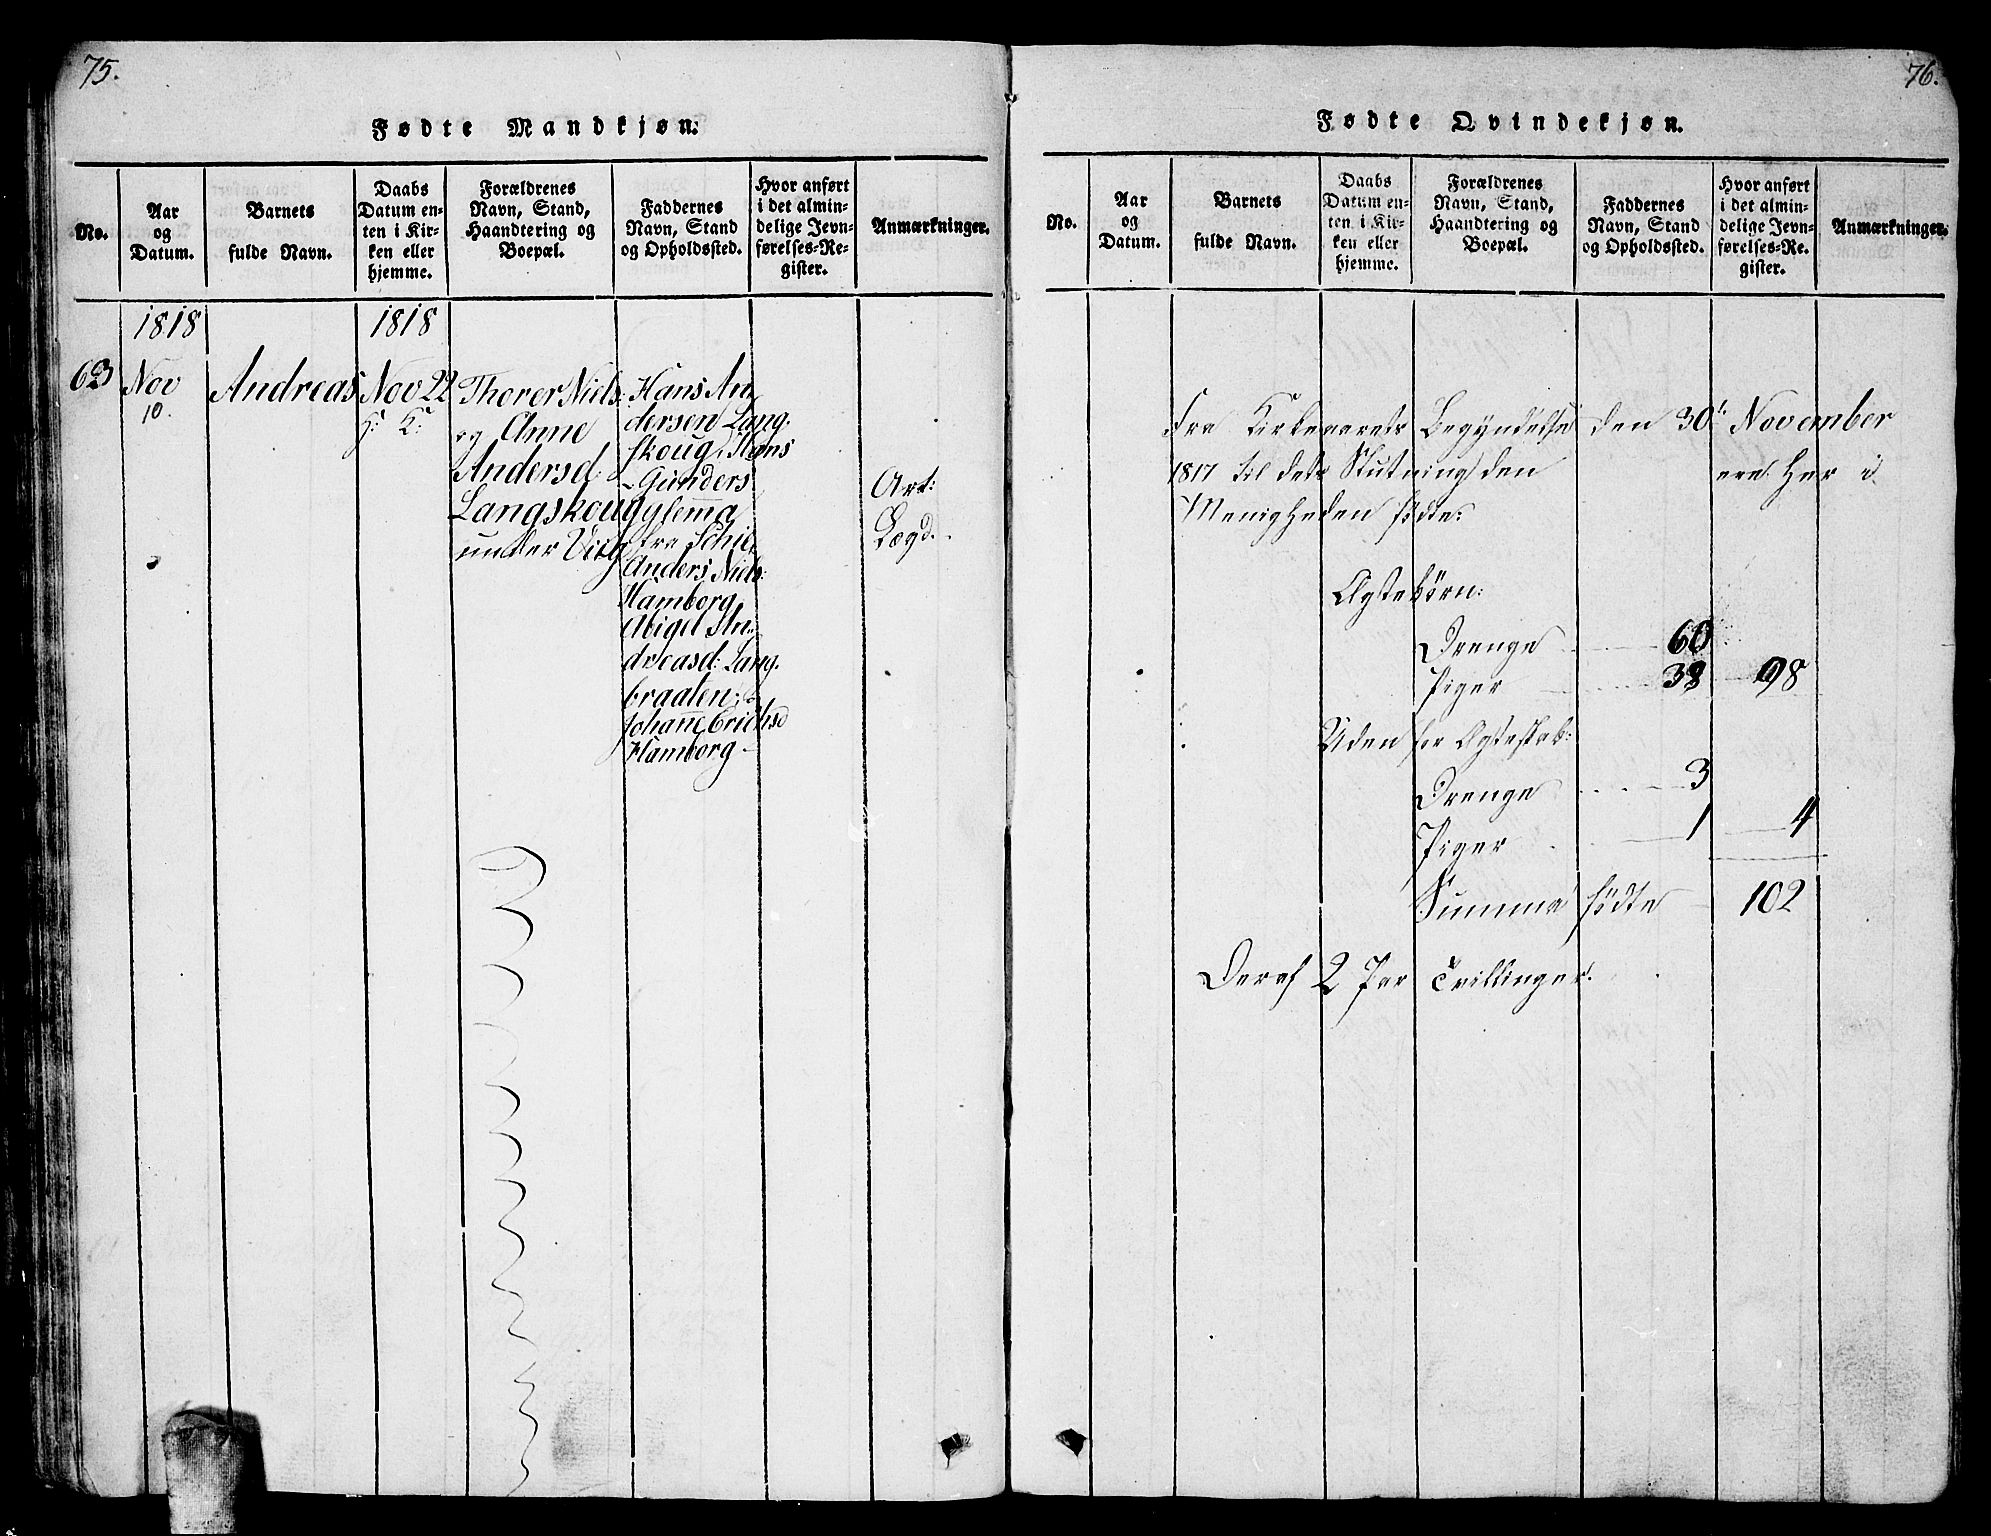 75.
Fødte Mandkjøn:
No.
Aar
og
Datum.
Barnets
fulde Navn.
Daabs
Datum en-
ten i Kir-
ken eller
hjemme.
Forældrenes
Navn, Stand,
Haandtering og
Boepæl.
Faddernes
Navn, Stand
og Opholdssted.
Hvor anført
i det almin-
delige Jevn-
førelses-Re-
gister.
Anmærkninger.
1818
1818
63
Nov
10.
Andreas
Nov 22
H: K:
Thorer Niels:
og Anne
Andersd:
Langskoug
under
Hans An
dersen Lang-
skoug, Hans
Gunders
fra
Anders Niels:
Hamborg,
Abigel An-
dreasd: Lang-
braaten;
Johanne Erichsd
Hamborg
76.
Fødte Qvindekjøn.
No.
Aar
og
Datum.
Barnets
fulde Navn.
Daabs
Datum en-
ten i Kir-
ken eller
hjemme.
Forældrenes
Navn, Stand,
Haandtering og
Boepæl.
Faddernes
Navn, Stand
og Opholdssted.
Hvor anført
i det almin-
delige Jevn-
førelses-Re-
gister.
Anmærkninger.
Fra Kirkeaarets Begyndelse den 30t November
1817 til dets Slutning den ere her i
Menigheden fødte:
Ægtebørn:
Drenge 60
Piger 38 98
Uden for Ægteskab:
Drenge 3
Piger 1 4
Summa fødte 102
Deraf 2 Par Tvillinger.